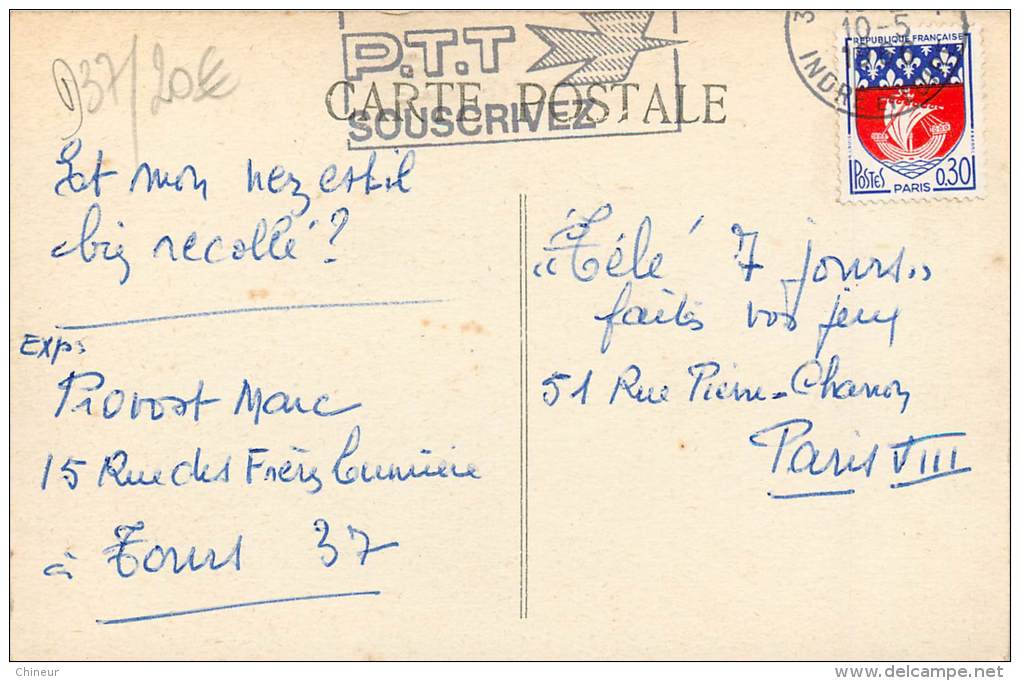 D37/20€
P.T.T
SOUSCRIVEZ
CARTE POSTALE
10-5
INDRE ET
REPUBLIQUE FRANÇAISE
POSTES
PARIS
0.30
Est mon nez est-il
bien recollé ?
Exp:
Provost Marc
15 Rue des Frères Lumière
à Tours 37
"Télé 7 jours"
faites vos jeux
51 Rue Pierre-Charron
Paris VIII
Chineur
www.delcampe.net